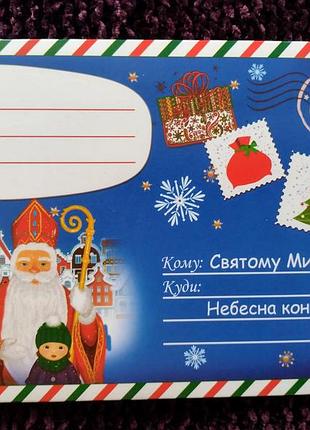 Кому: Святому
Куди:
Небесна